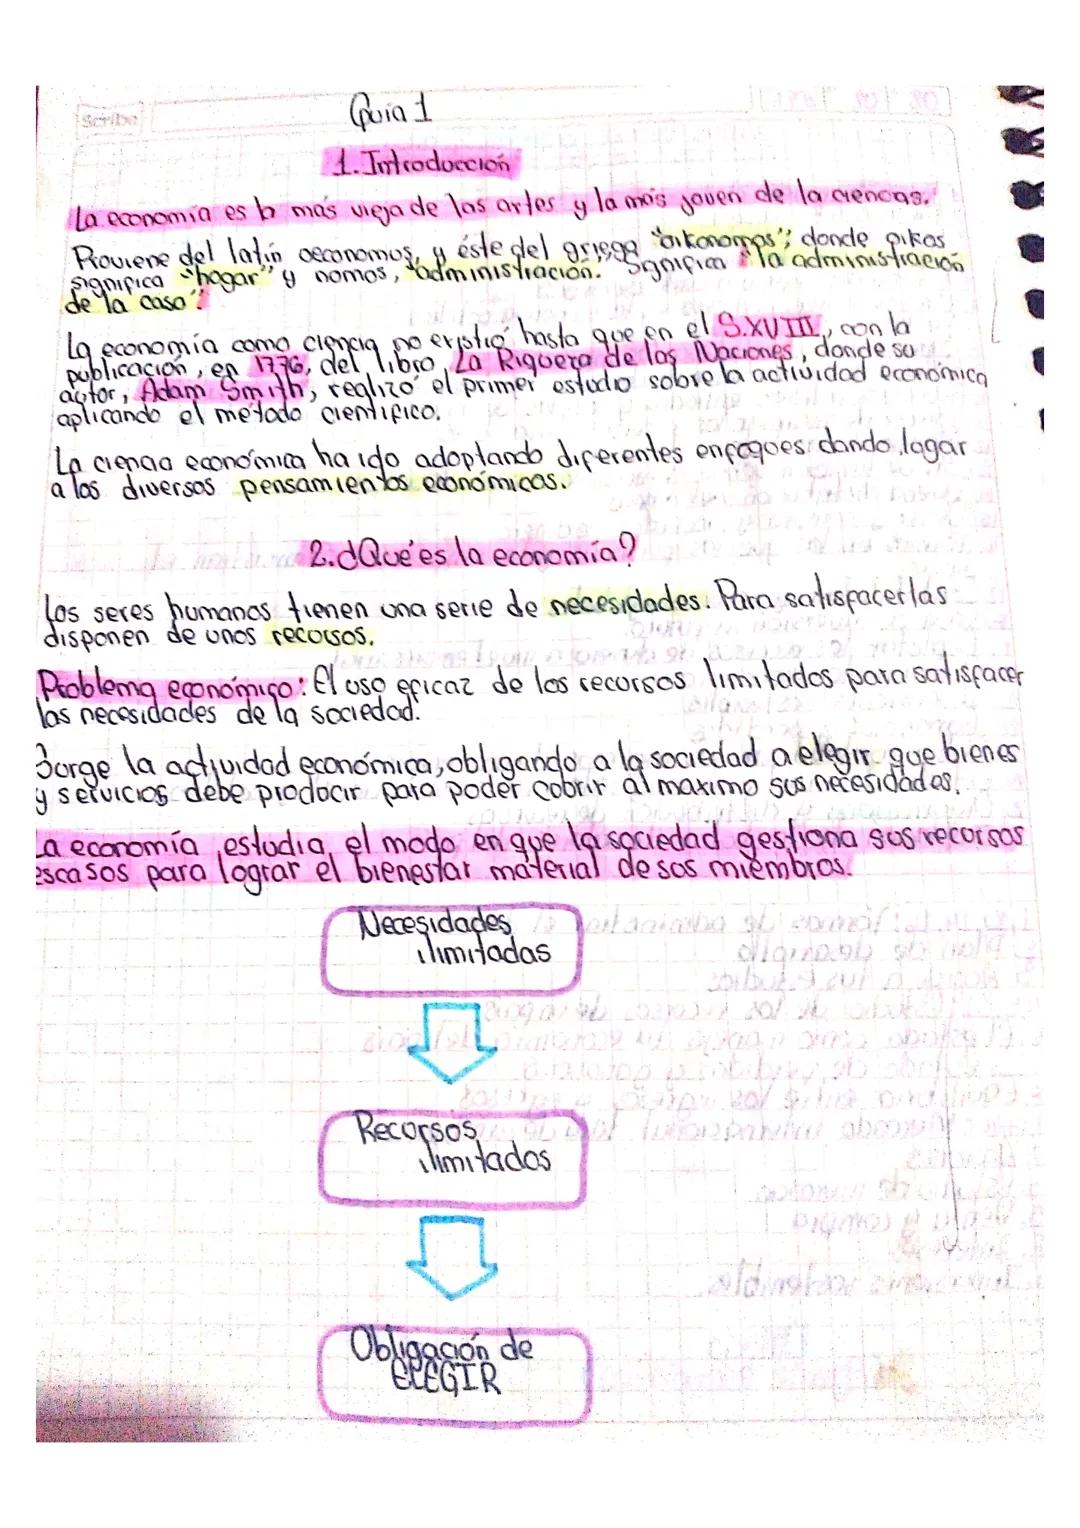 Scribe
Guia 1
1. Introducción
La economía es la más vieja de las artes y la más joven de la ciencias.
Proviene del latín oeconomus, y éste del griego "oikonomos"; donde oikos
significa "hogar" y nomos, "administración. Significa "la administración
de la casa".
La economía como ciencia no existió hasta que en el S.XVIII, con la
publicación, en 1776, del libro, La Riqueza de las Naciones, donde su
autor, Adam Smith, realizó el primer estudio sobre la actividad económica
aplicando el método científico.
La ciencia económica ha ido adoptando diferentes enfoques dando lugar
a los diversos pensamientos económicos.
2. ¿Qué es la economía?
Los seres humanos tienen una serie de necesidades. Para satisfacerlas
disponen de unos recursos.
Problema económico: El uso eficaz de los recursos limitados para satisfacer
las necesidades de la sociedad.
Surge la actividad económica, obligando a la sociedad a elegir que bienes
y servicios debe producir para poder cubrir al maximo sus necesidades.
La economía estudia el modo en que la sociedad gestiona sus recursos
escasos para lograr el bienestar material de sus miembros.
Necesidades
ilimitadas
Recursos
ilimitados
Obligación de
ELEGIR